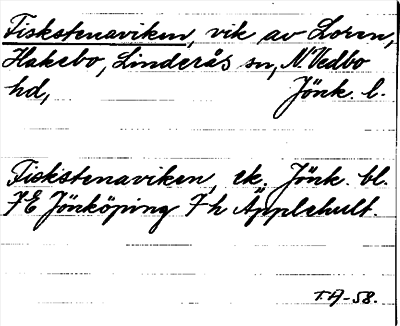 Fiskstenaviken, vik av Loren,
Hakebo, Linderås sn, N. Vedbo
hd, Jönk. l.
Fiskstenaviken, ek. Jönk. bl.
7E Jönköping 7h Äpplehult.
T.A-58.